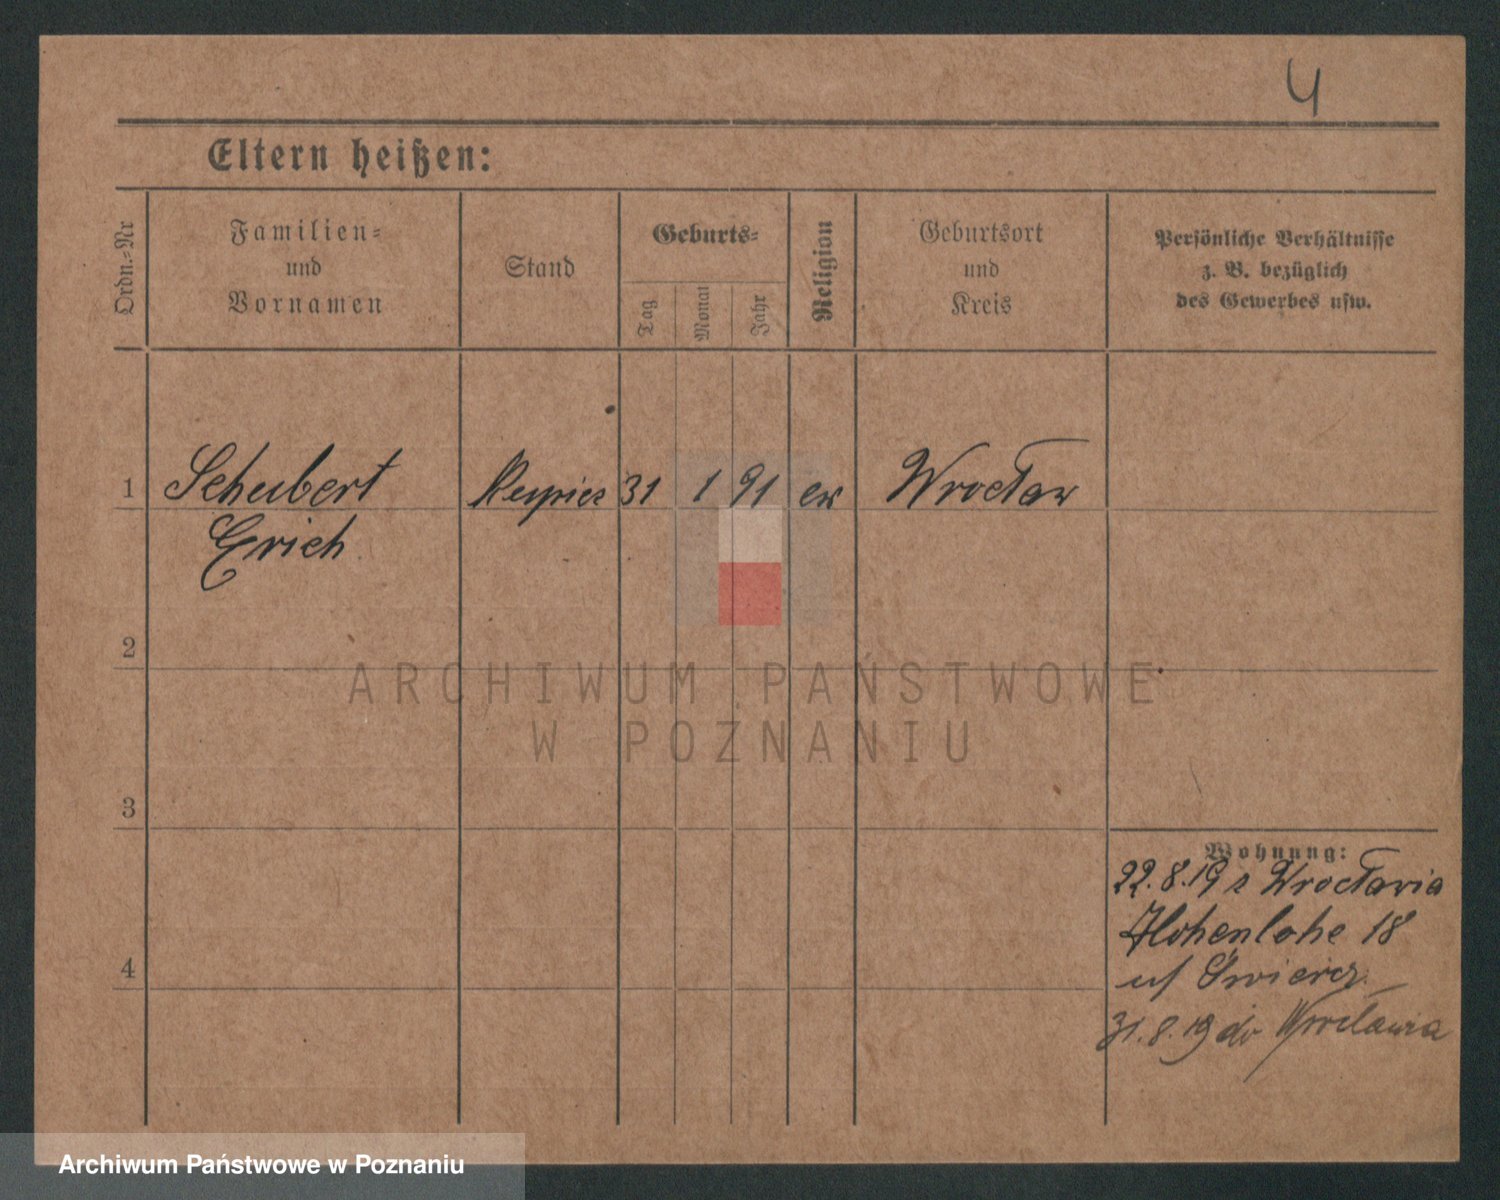 4
Eltern heißen:
Ordn.-Nr
Familien-
und
Vornamen
Stand
Geburts-
Tag
Monat
Jahr
Religion
Geburtsort
und
Kreis
Persönliche Verhältnisse
z. B. bezüglich
des Gewerbes usw.
1 Schubert 31 1 91 ew Wrocław
Erich
2
3
4
Wohnung:
22.8.19 z Wrocławia
Hohenlohe 18
31.8.19 do Wrocławia
ARCHIWUM PAŃSTWOWE
W POZNANIU
Archiwum Państwowe w Poznaniu